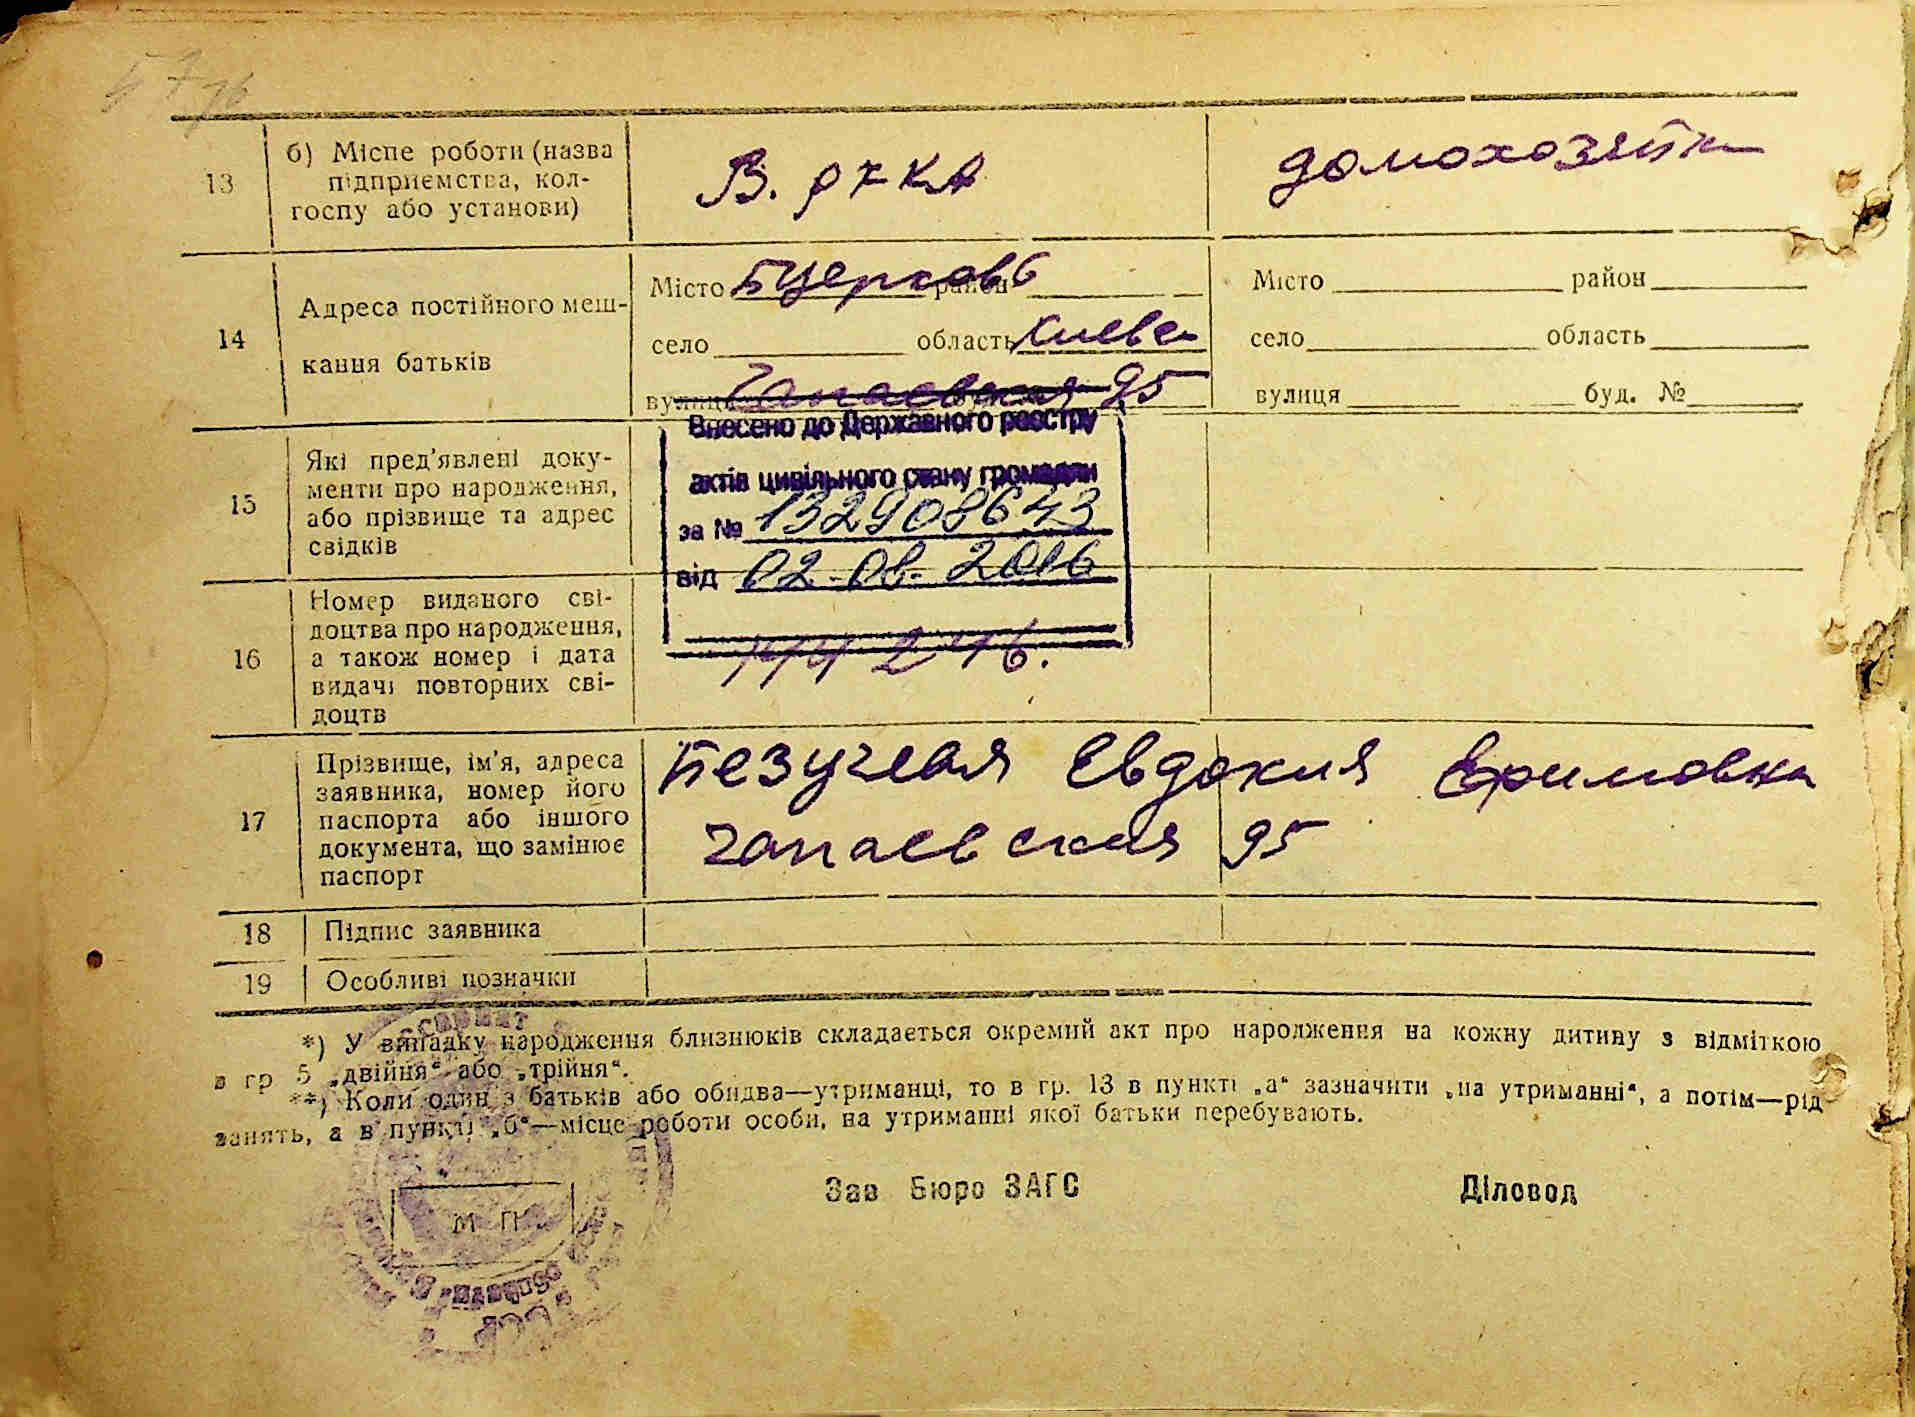 13 б) Місце роботи (назва
підприємства, кол-
госпу або установи)
В. РККА домохозяйка
14 Адреса постійного меш-
кання батьків
Місто БЦерковь район
село область Киевск
вулиця Чапаевская 95
Місто район
село область
вулиця буд. №
15 Які пред'явлені доку-
менти про народження,
або прізвище та адрес
свідків
Внесено до Державного реєстру
актів цивільного стану громадян
за № 132908643
від 02.08.2016
16 Номер виданого сві-
доцтва про народження,
а також номер і дата
видачі повторних сві-
доцтв
17 Прізвище, ім'я, адреса
заявника, номер його
паспорта або іншого
документа, що замінює
паспорт
Евдокия Ефимовна
Чапаевская 95
18 Підпис заявника
19 Особливі позначки
*) У випадку народження близнюків складається окремий акт про народження на кожну дитину з відміткою
в гр 5 „двійня“ або „трійня“.
**) Коли один з батьків або обидва—утриманці, то в гр. 13 в пункті „а“ зазначити „на утриманні“, а потім—рід
занять, а в пункті „б“—місце роботи особи, на утриманні якої батьки перебувають.
Зав Бюро ЗАГС Діловод
М П